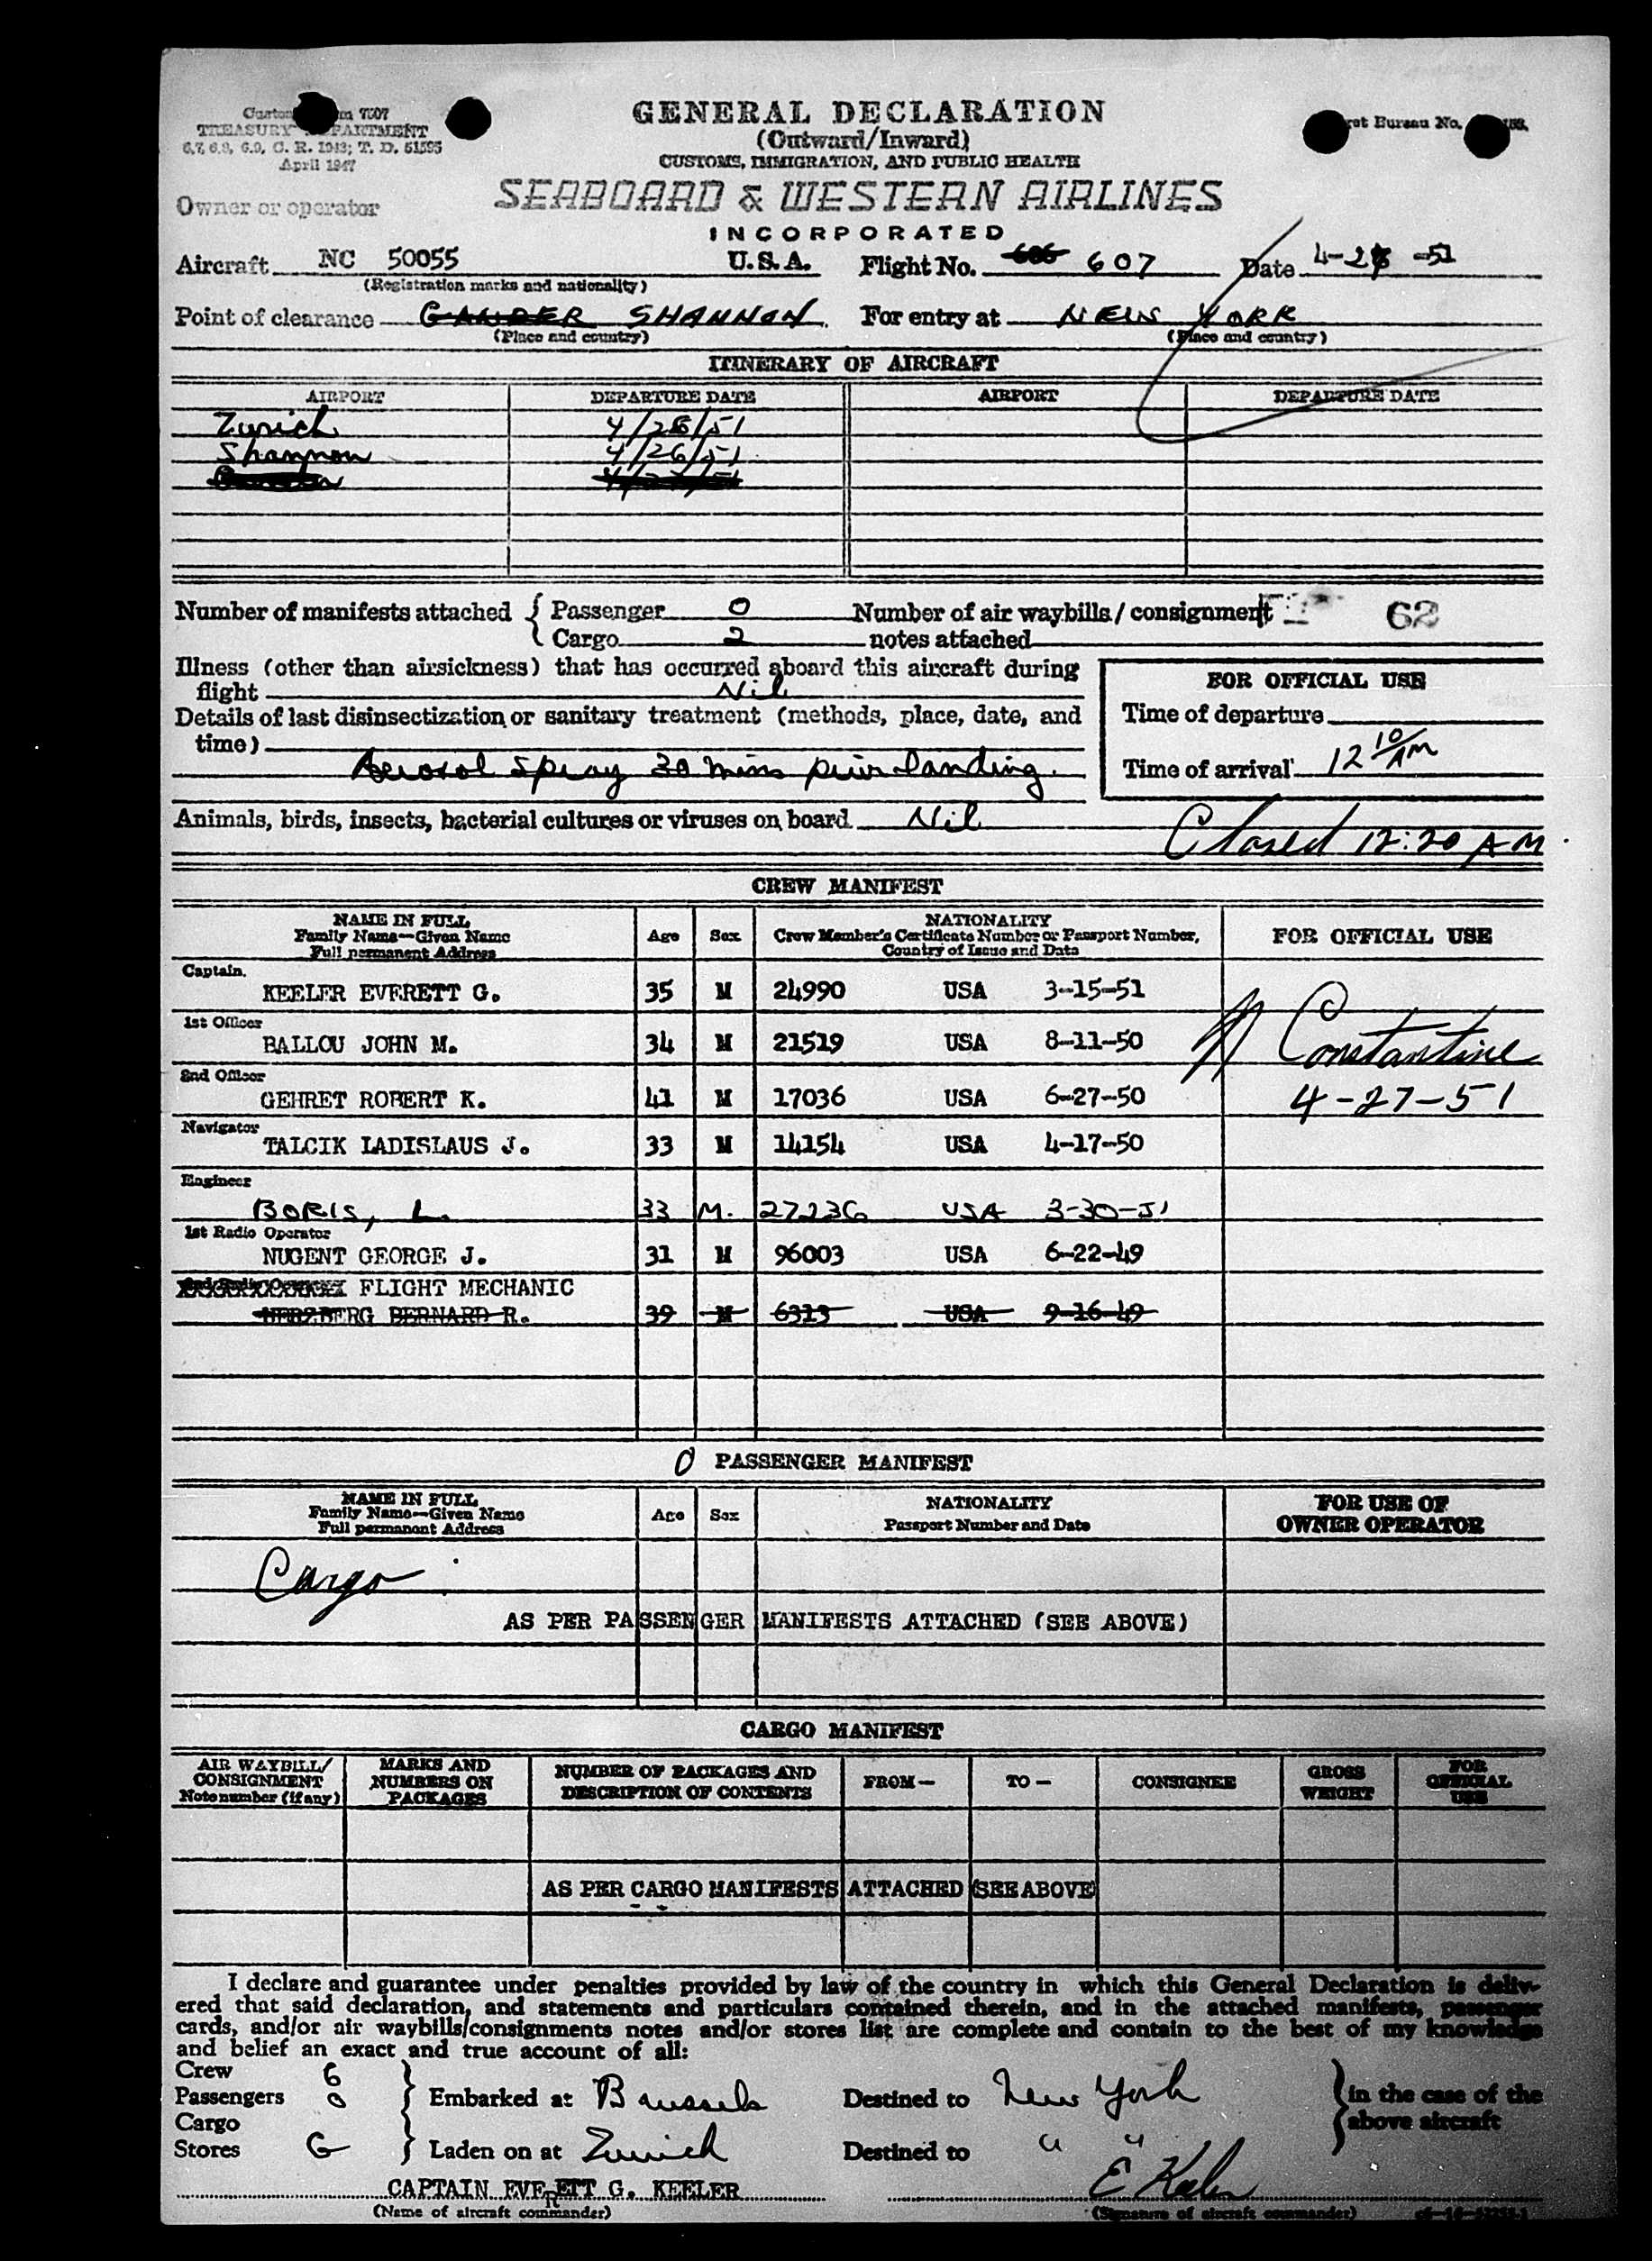 GENERAL DECLARATION
(Outward/Inward)
CUSTOMS, IMMIGRATION, AND PUBLIC HEALTH
TREASURY DEPARTMENT
6.7, 6.8, 6.9, C. R. 1943; T. D. 51595
April 1947
Owner or operator
SEABOARD & WESTERN AIRLINES
INCORPORATED
Aircraft NC 50055 U.S.A. Flight No. 606 607 Date 4-28-51
(Registration marks and nationality)
Point of clearance GANDER SHANNON For entry at NEW YORK
(Place and country) (Place and country)
ITINERARY OF AIRCRAFT
AIRPORT DEPARTURE DATE AIRPORT DEPARTURE DATE
Zurich 4/26/51
Shannon 4/26/51
Number of manifests attached { Passenger 0 Number of air waybills/consignment 62
Cargo 2 notes attached
Illness (other than airsickness) that has occurred aboard this aircraft during
flight Nil
FOR OFFICIAL USE
Details of last disinsectization or sanitary treatment (methods, place, date, and
time)
Time of departure
Aerosol Spray 30 mins prior landing.
Time of arrival 12 10/AM
Animals, birds, insects, bacterial cultures or viruses on board Nil
Closed 12:20 AM.
CREW MANIFEST
NAME IN FULL
Family Name—Given Name
Full permanent Address
Age Sex
NATIONALITY
Crew Member's Certificate Number or Passport Number,
Country of Issue and Date
FOR OFFICIAL USE
Captain.
KEELER EVERETT G. 35 M 24990 USA 3-15-51
1st Officer
BALLOU JOHN M. 34 M 21519 USA 8-11-50
Constantine
2nd Officer
GEHRET ROBERT K. 41 M 17036 USA 6-27-50
4-27-51
Navigator
TALCIK LADISLAUS J. 33 M 14154 USA 4-17-50
Engineer
BORIS, L. 33 M. 27236 USA 3-30-51
1st Radio Operator
NUGENT GEORGE J. 31 M 96003 USA 6-22-49
FLIGHT MECHANIC
HERZBERG BERNARD R. 39 M 6313 USA 9-16-49
0 PASSENGER MANIFEST
NAME IN FULL
Family Name—Given Name
Full permanent Address
Age Sex
NATIONALITY
Passport Number and Date
FOR USE OF
OWNER OPERATOR
Cargo
AS PER PASSENGER MANIFESTS ATTACHED (SEE ABOVE)
CARGO MANIFEST
AIR WAYBILL/
CONSIGNMENT
Note number (if any)
MARKS AND
NUMBERS ON
PACKAGES
NUMBER OF PACKAGES AND
DESCRIPTION OF CONTENTS
FROM—
TO—
CONSIGNEE
GROSS
WEIGHT
FOR
OFFICIAL
USE
AS PER CARGO MANIFESTS ATTACHED (SEE ABOVE
I declare and guarantee under penalties provided by law of the country in which this General Declaration is deliv-
ered that said declaration, and statements and particulars contained therein, and in the attached manifests, passenger
cards, and/or air waybills/consignments notes and/or stores list are complete and contain to the best of my knowledge
and belief an exact and true account of all:
Crew 6
Passengers 0 } Embarked at Brussels Destined to New York } in the case of the
Cargo above aircraft
Stores G } Laden on at Zurich Destined to " "
CAPTAIN EVERETT G. KEELER E Keeler
(Name of aircraft commander) (Signature of aircraft commander)